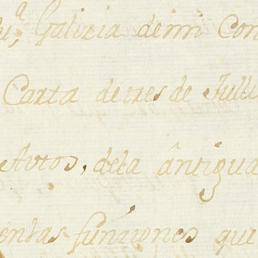 Galizia demi Con
Carta detres de Julli
Autos, dela ântigua
entas funziones que